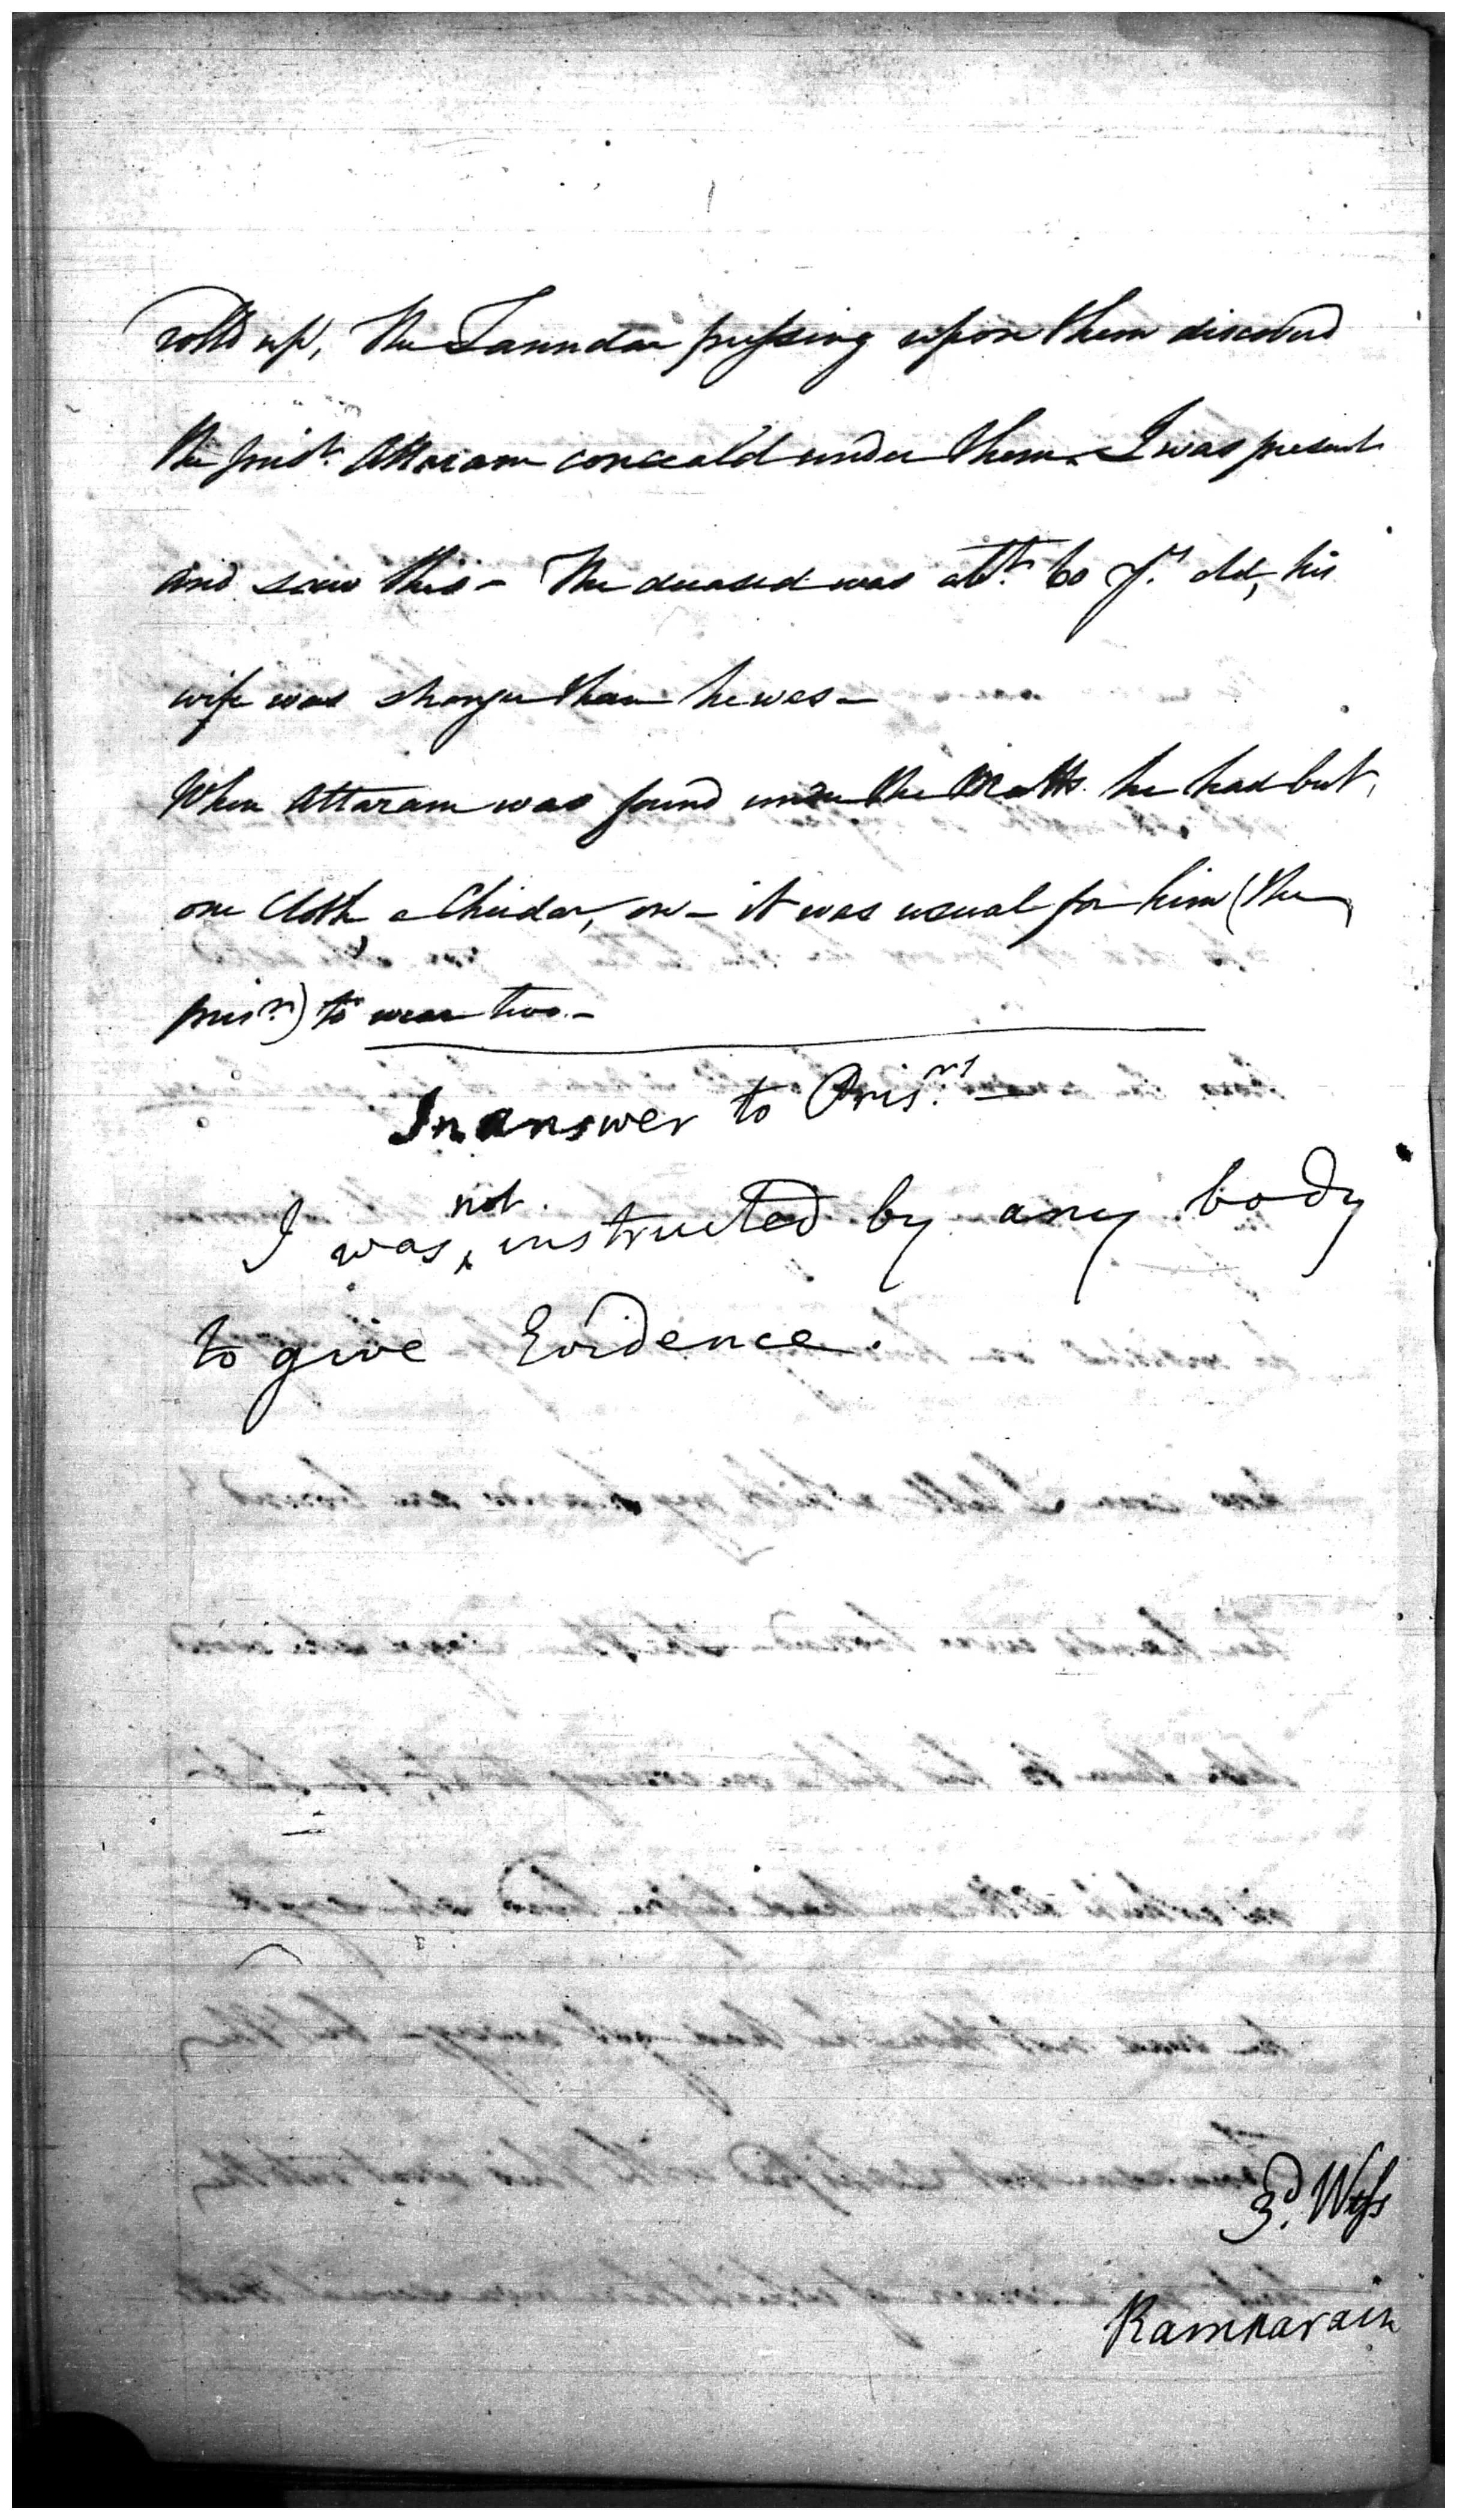 rolld up, The Tanndar pressing upon them discoverd
the prisr. Attaram conceald under them. I was present
and saw this - The deceased was abt. 60 yrs. old, his
wife was stronger than he was -
When Attaram was found under the Matts he had but
one Cloth, a Chudar, on - it was usual for him (the
prisr.) to wear two. -
In answer to Prisrs. -
I was not instructed by any body
to give Evidence.
3d. Wss
Ramnarain